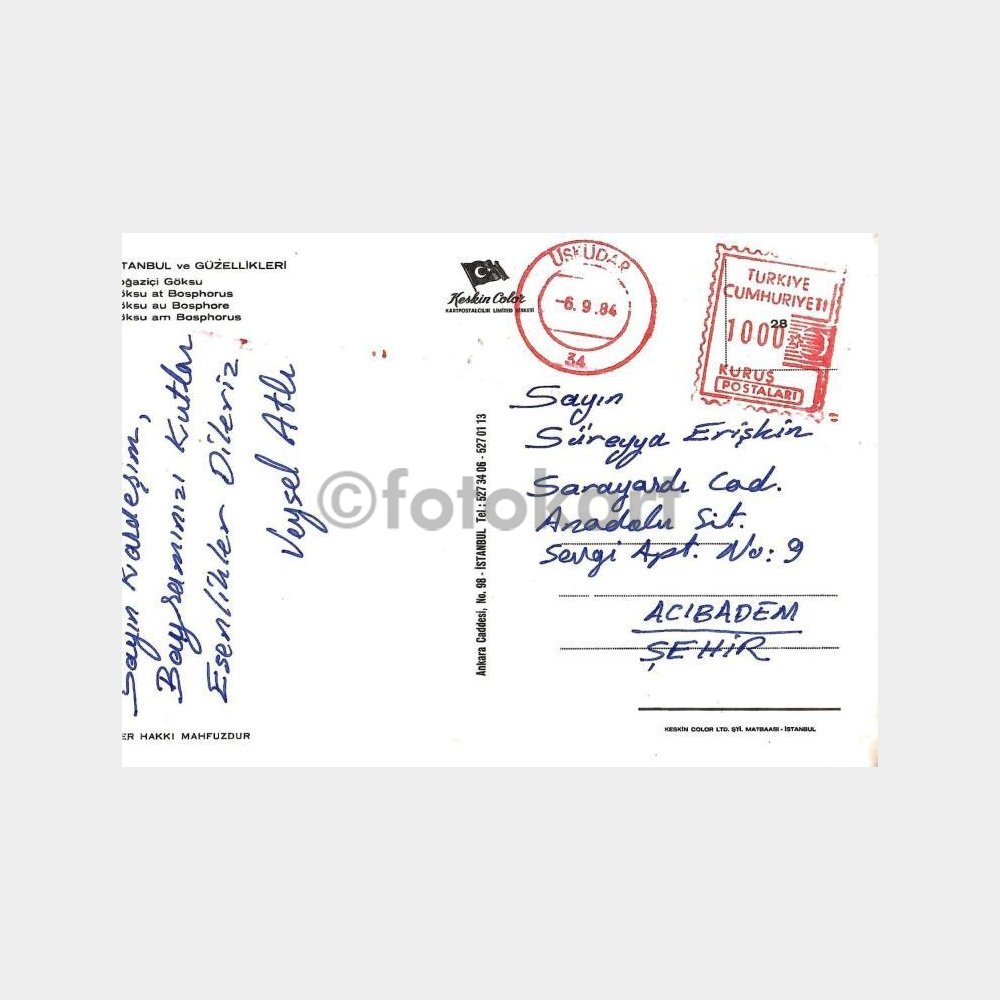 TANBUL ve GÜZELLİKLERİ
oğaziçi Göksu
öksu at Bosphorus
öksu au Bosphore
öksu am Bosphorus
Sayın Kardeşim,
Bayramınızı Kutlar
Esenlikler Dileriz
Veysel Atlı
ER HAKKI MAHFUZDUR
Keskin Color
KARTPOSTALCILIK LİMİTED ŞİRKETİ
Ankara Caddesi, No. 98 - İSTANBUL Tel.: 527 34 06 - 527 01 13
ÜSKÜDAR
-6.9.84
34
TÜRKİYE
CUMHURİYETİ
1000
28
KURUŞ
POSTALARI
Sayın
Süreyya Erişkin
Sarayardı Cad.
Anadolu Sit.
Sevgi Apt. No: 9
ACIBADEM
ŞEHİR
KESKİN COLOR LTD. ŞTİ. MATBAASI - İSTANBUL
©fotokart